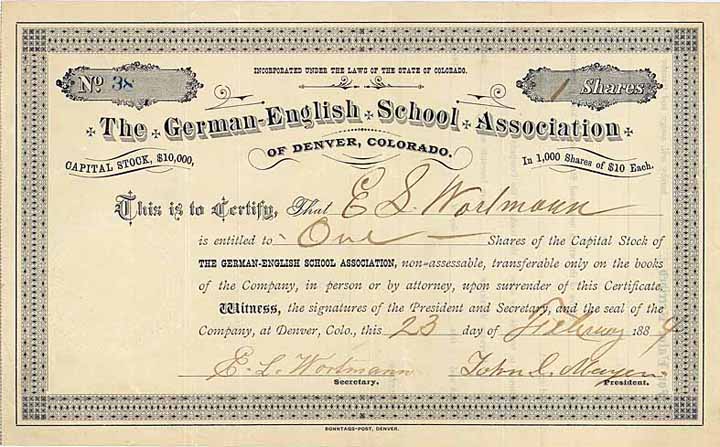 INCORPORATED UNDER THE LAWS OF THE STATE OF COLORADO.
No. 38
1 Shares
The German-English School Association
OF DENVER, COLORADO.
CAPITAL STOCK, $10,000,
In 1,000 Shares of $10 Each.
This is to Certify, That E. L. Wortmann
is entitled to One Shares of the Capital Stock of
THE GERMAN-ENGLISH SCHOOL ASSOCIATION, non-assessable, transferable only on the books
of the Company, in person or by attorney, upon surrender of this Certificate.
Witness, the signatures of the President and Secretary, and the seal of the
Company, at Denver, Colo., this 23 day of February 1884
E. L. Wortmann John
Secretary.
President.
SONNTAGS-POST, DENVER.